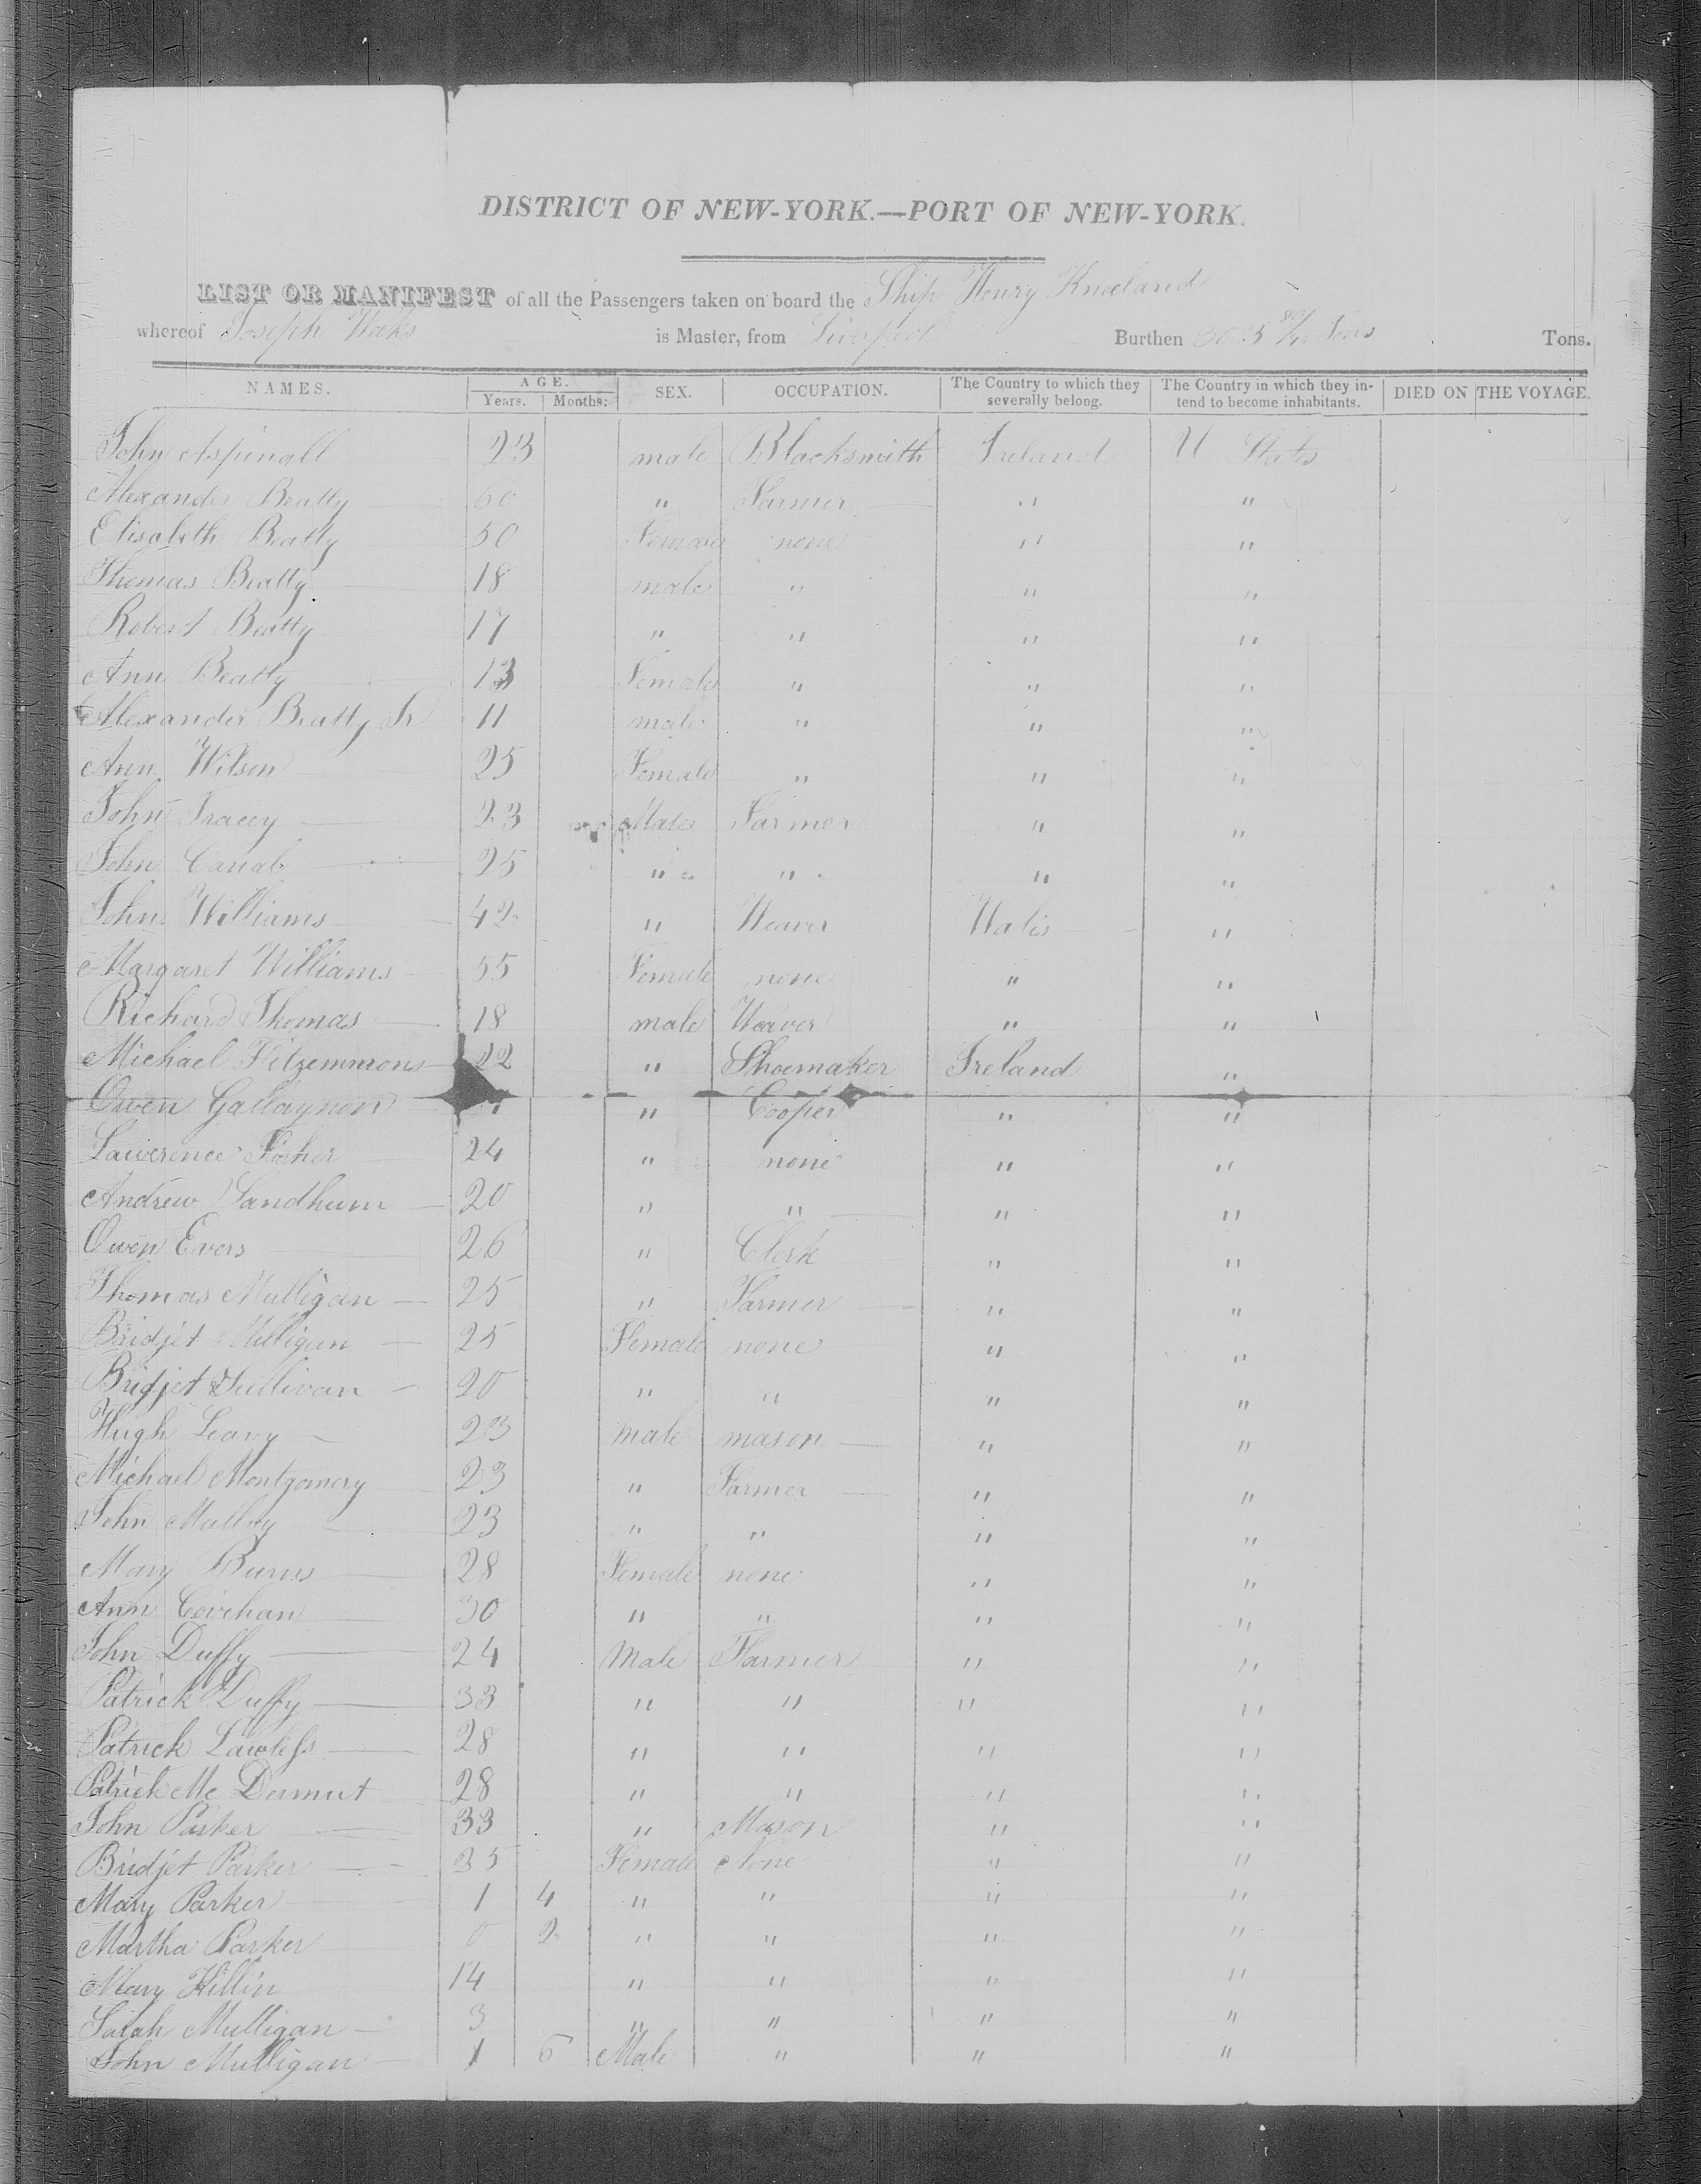 DISTRICT OF NEW-YORK.—PORT OF NEW-YORK.
LIST OR MANIFEST of all the Passengers taken on board the Ship Henry Kneeland
whereof Joseph is Master, from Liverpool Burthen Tons Tons.
NAMES. AGE. Years. Months: SEX. OCCUPATION. The Country to which they severally belong. The Country in which they intend to become inhabitants. DIED ON THE VOYAGE.
John Aspinall 23 male Blacksmith Ireland U States
Alexander Beatty 60 " Farmer " "
Elisabeth Beatty 50 Female none " "
Thomas Beatty 18 male " " "
Robert Beatty 17 " " " "
Ann Beatty 13 Female " " "
Alexander Beatty Jr 11 male " " "
Ann Wilson 25 Female " " "
John Tracey 23 Male Farmer " "
John 25 " " " "
John Williams 42 " Weaver Wales "
Margaret Williams 55 Female none " "
Richard Thomas 18 male Weaver " "
Michael Fitzemmons 22 " Shoemaker Ireland "
Owen " Cooper " "
Lawerence 24 " none " "
Andrew Landhum 20 " " " "
Owen Evers 26 " Clerk " "
Thomas Mulligan 25 " Farmer " "
Bridjet Mulligan 25 Female none " "
Bridjet Sullivan 20 " " " "
Hugh Leavy 23 male mason " "
Michael Montgomery 23 " Farmer " "
John Malloy 23 " " " "
Mary Burns 28 Female none " "
Ann Covehan 30 " " " "
John Duffy 24 Male Farmer " "
Patrick Duffy 33 " " " "
Patrick Lawless 28 " " " "
Patrick Mc Dermut 28 " " " "
John Parker 33 " Mason " "
Bridjet Parker 35 Female None " "
Mary Parker 1 4 " " " "
Martha Parker 0 2 " " " "
Mary Killin 14 " " " "
Sarah Mulligan 3 " " " "
John Mulligan 1 6 Male " " "